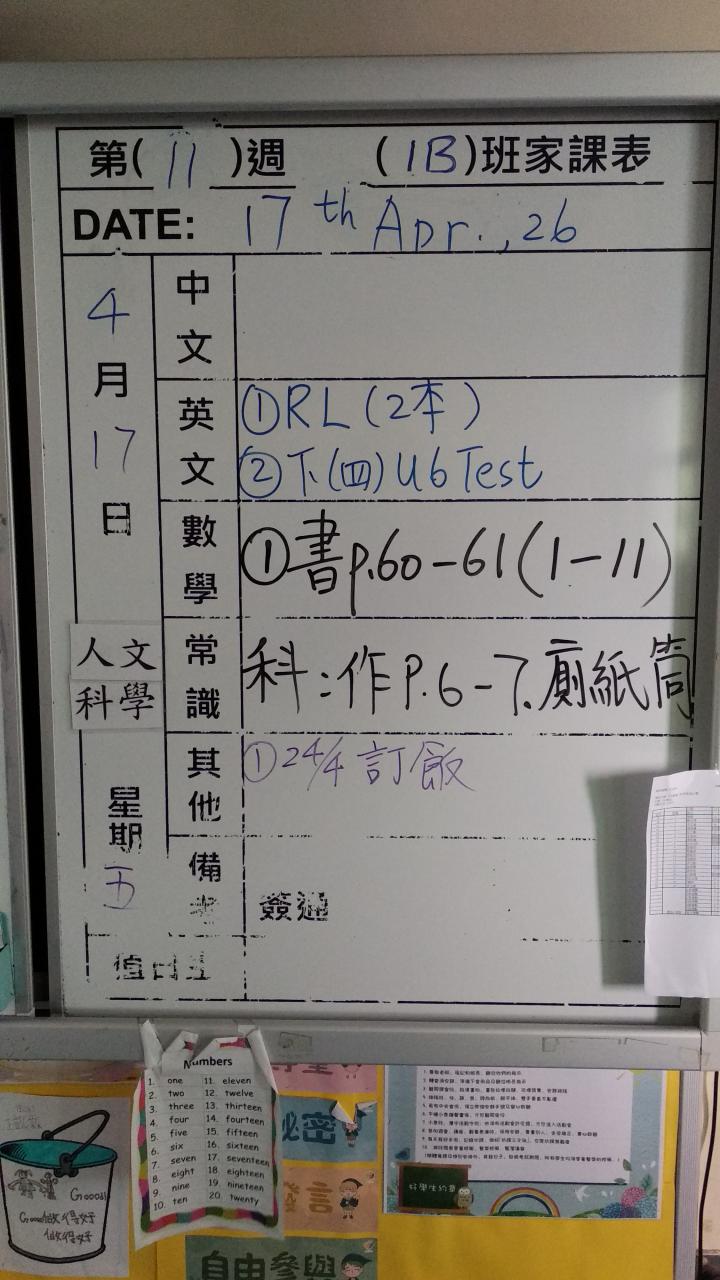 第( 11 )週 (1B)班家課表
DATE: 17th Apr., 26
4月17日
人文
科學
星期五
中文
英文
①RL(2本)
②下(四)U6 Test
數學
①書p.60-61(1-11)
常識
科:作P.6-7.廁紙筒
其他
①24/4 訂飯
備
簽通
值日生
Numbers
1. one 11. eleven
2. two 12. twelve
3. three 13. thirteen
4. four 14. fourteen
5. five 15. fifteen
6. six 16. sixteen
7. seven 17. seventeen
8. eight 18. eighteen
9. nine 19. nineteen
10. ten 20. twenty
Good!
Good做得好
做得好
秘密
言
自由參與
好學生約章